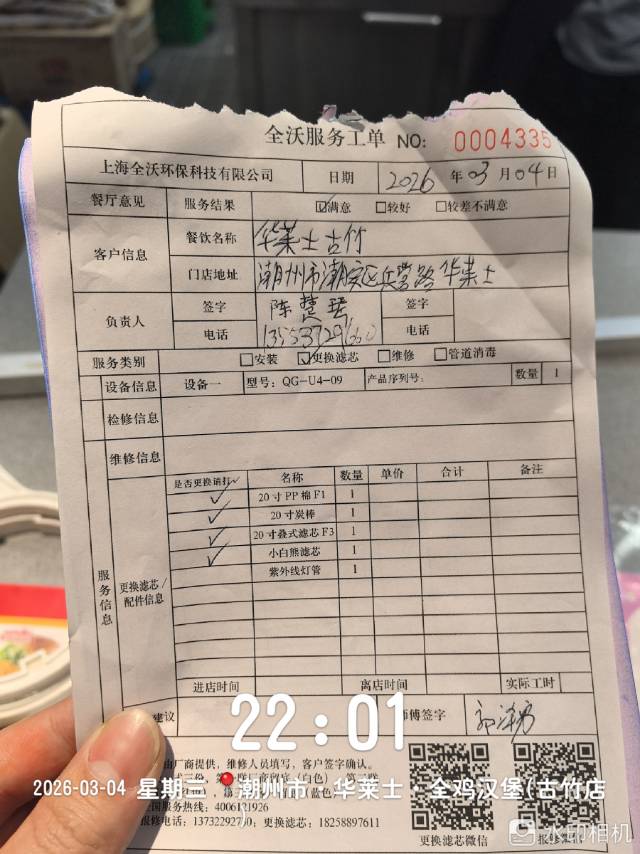 全沃服务工单 NO: 0004335
上海全沃环保科技有限公司 日期 2026 年 03 月 04 日
餐厅意见 服务结果 ☑满意 □较好 □较差不满意
客户信息 餐饮名称 华莱士古竹
门店地址 潮州市潮安区兵营路华莱士
负责人 签字 陈 签字
电话 电话
服务类别 □安装 ☑更换滤芯 □维修 □管道消毒
设备信息 设备一 型号: QG-U4-09 产品序列号: 数量 1
检修信息
维修信息
服务信息 更换滤芯/配件信息
是否更换请打√ 名称 数量 单价 合计 备注
✓ 20寸PP棉F1 1
✓ 20寸炭棒 1
✓ 20寸叠式滤芯F3 1
✓ 小白熊滤芯 1
紫外线灯管 1
进店时间 离店时间 实际工时
建议 师傅签字
22:01
由厂商提供,维修人员填写,客户签字确认。
式三份,第 厂商留底(白色)
全国服务热线:4006121926
报修电话:13732292780 更换滤芯:18258897611
更换滤芯微信
2026-03-04 星期三 潮州市·华莱士·全鸡汉堡(古竹店
水印相机